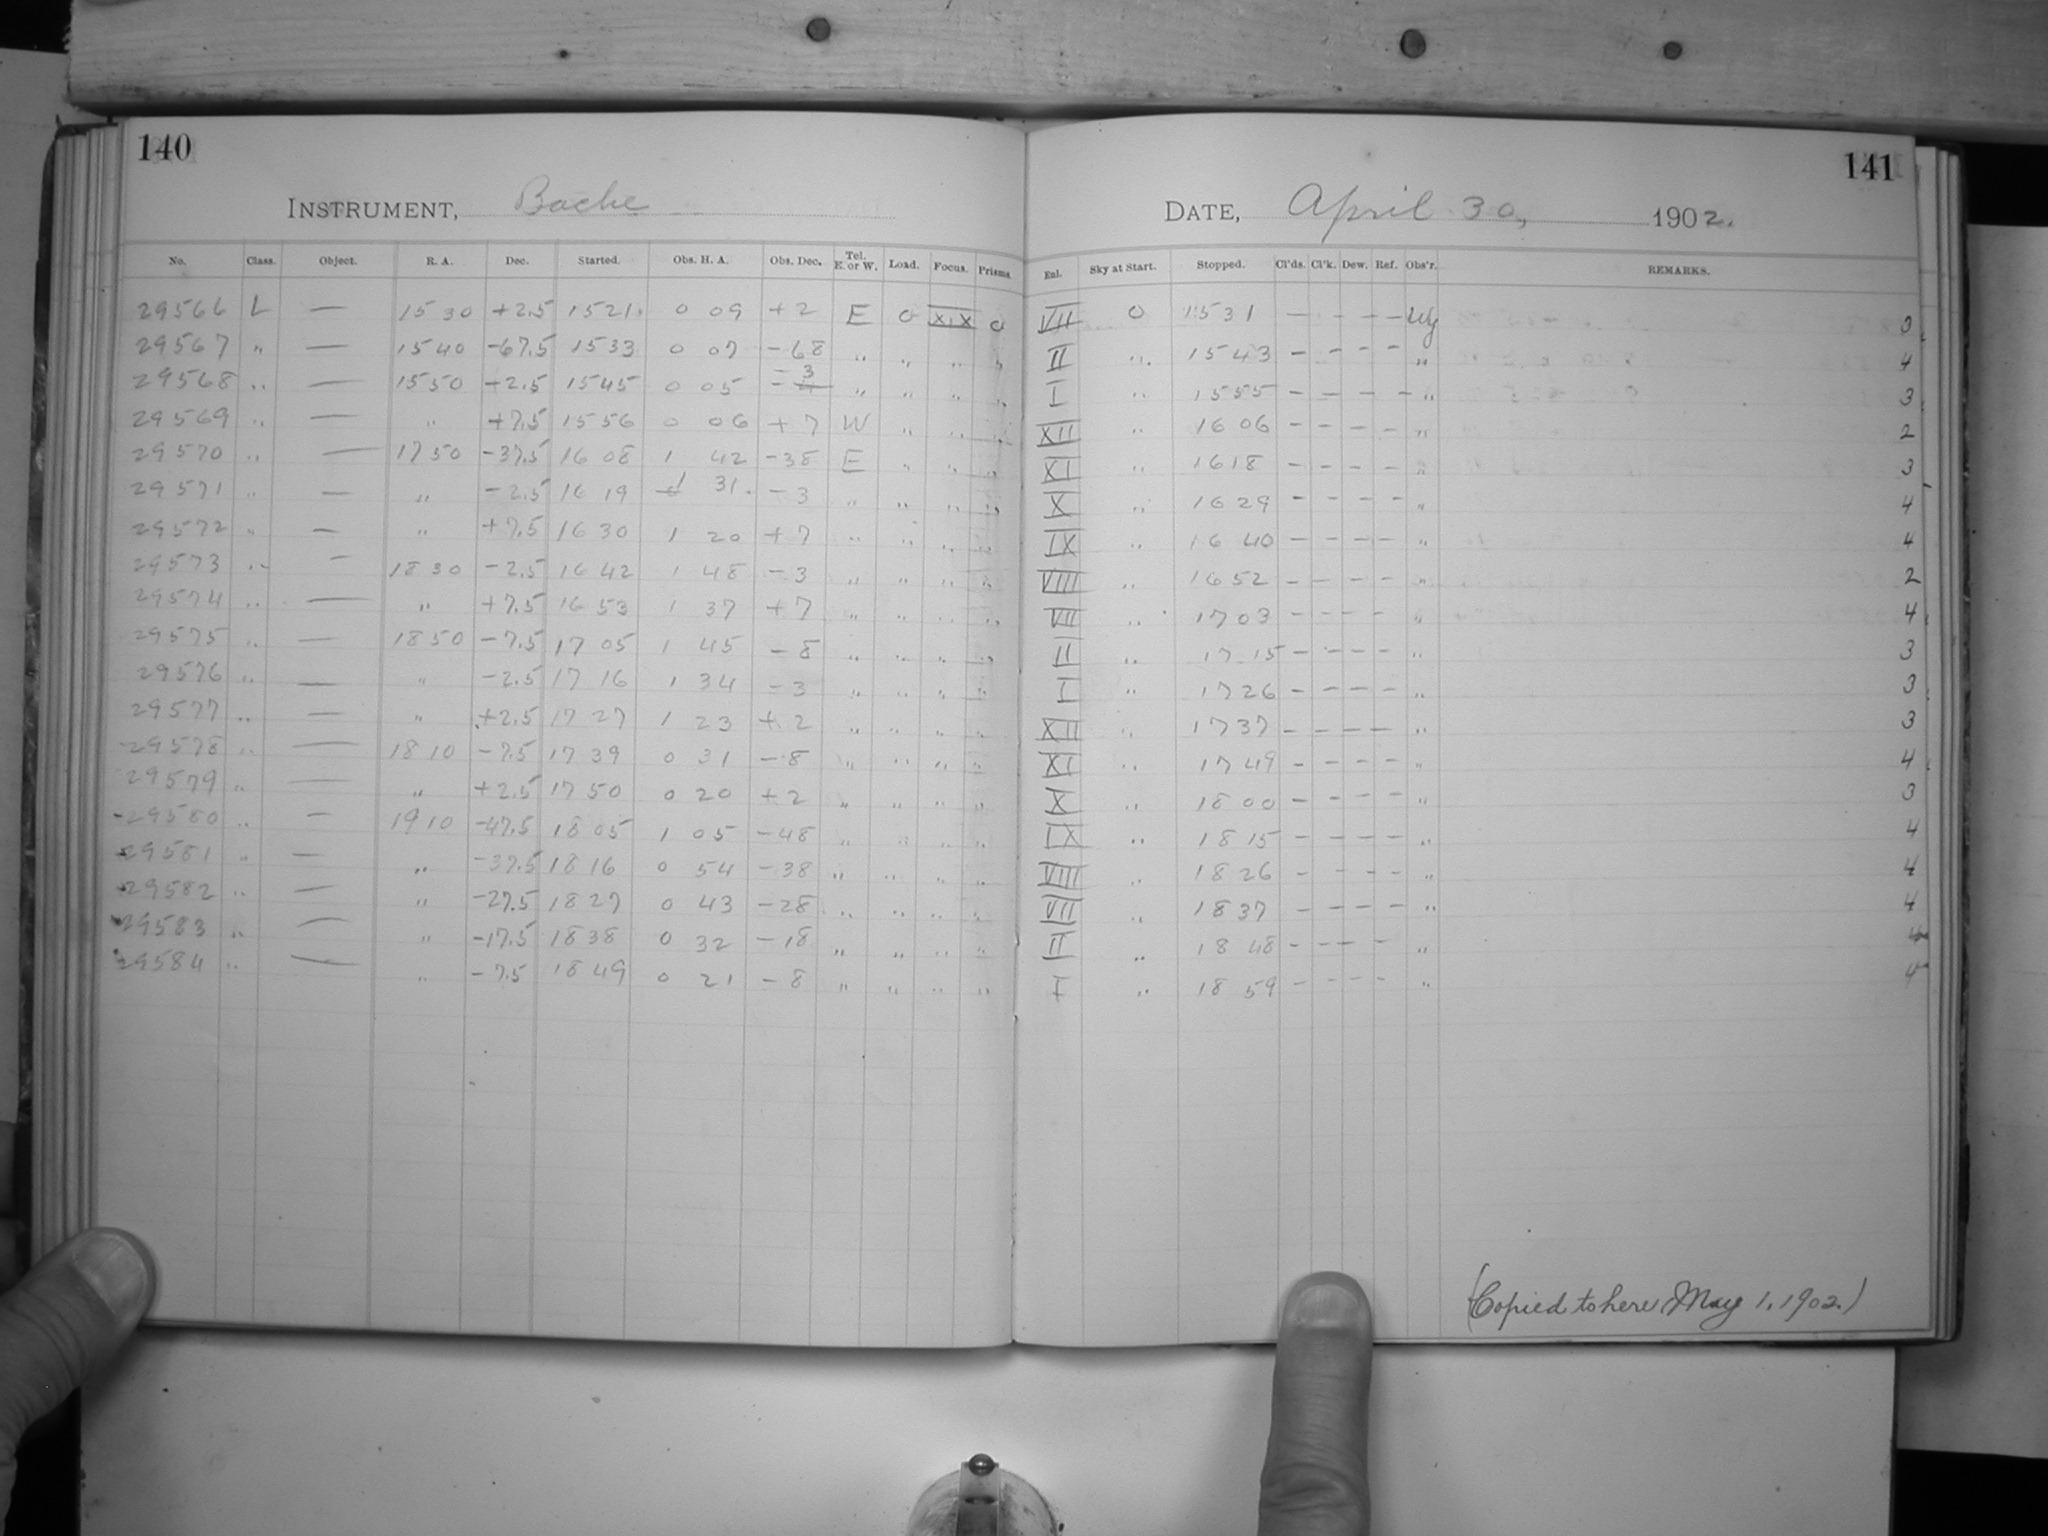 140
INSTRUMENT, Bache
No. Class. Object. R. A. Dec. Started. Obs. H. A. Obs. Dec. Tel. E. or W. Load. Focus. Prisms.
29566 L — 15 30 +2.5 1521. 0 09 +2 E 0 XIX 0
29567 " — 1540 -67.5 1533 0 07 -68 " " " "
29568 " — 1550 +2.5 1545 0 05 -3 " " " "
29569 " — " +7.5 1556 0 06 +7 W " " "
29570 " — 1750 -37.5 16 08 1 42 -38 E " " "
29571 " — " -2.5 16 19 1 31. -3 " " " "
29572 " — " +7.5 16 30 1 20 +7 " " " "
29573 " — 18 30 -2.5 16 42 1 48 -3 " " " "
29574 " — " +7.5 16 53 1 37 +7 " " " "
29575 " — 18 50 -7.5 17 05 1 45 -8 " " " "
29576 " — " -2.5 17 16 1 34 -3 " " " "
29577 " — " +2.5 17 27 1 23 +2 " " " "
29578 " — 18 10 -7.5 17 39 0 31 -8 " " " "
29579 " — " +2.5 17 50 0 20 +2 " " " "
29580 " — 19 10 -47.5 18 05 1 05 -48 " " " "
29581 " — " -37.5 18 16 0 54 -38 " " " "
29582 " — " -27.5 18 27 0 43 -28 " " " "
29583 " — " -17.5 18 38 0 32 -18 " " " "
29584 " — " -7.5 18 49 0 21 -8 " " " "
141
DATE, April 30, 1902.
Enl. Sky at Start. Stopped. Cl'ds. Cl'k. Dew. Ref. Obs'r. REMARKS.
VII 0 1531 — — — — 3
II " 1543 — — — — " 4
I " 1555 — — — — " 3
XII " 16 06 — — — — " 2
XI " 1618 — — — — " 3
X " 16 29 — — — — " 4
IX " 16 40 — — — — " 4
VIII " 1652 — — — — " 2
VII " 17 03 — — — — " 4
II " 17 15 — — — — " 3
I " 1726 — — — — " 3
XII " 1737 — — — — " 3
XI " 17 49 — — — — " 4
X " 18 00 — — — — " 3
IX " 18 15 — — — — " 4
VIII " 18 26 — — — — " 4
VII " 18 37 — — — — " 4
II " 18 48 — — — — " 4
I " 18 59 — — — — " 4
(Copied to here May 1, 1902.)